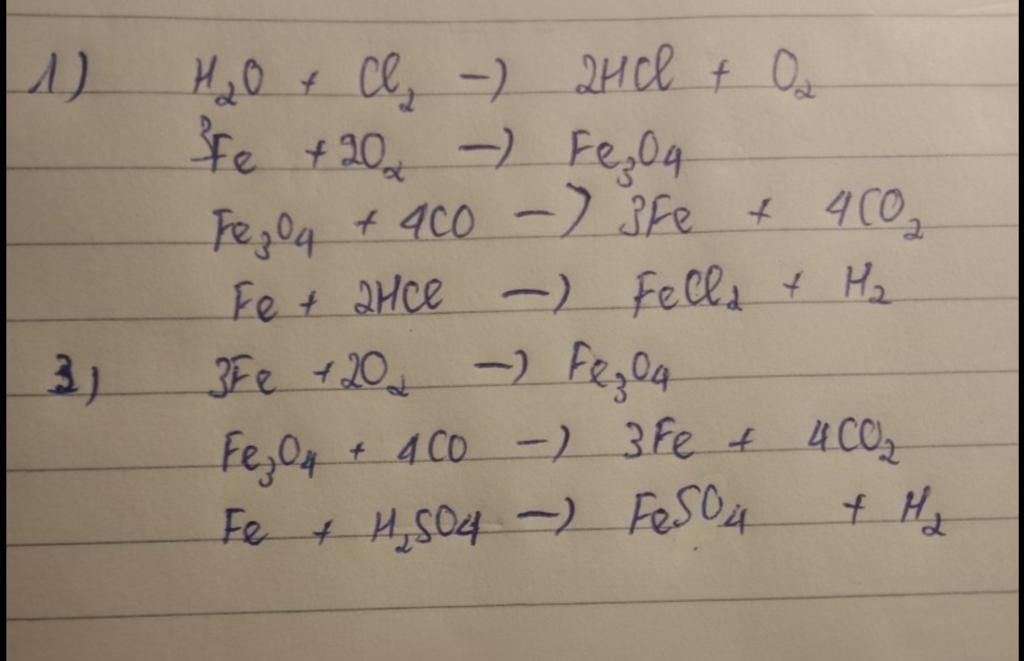 1) H₂O + Cl₂ → 2HCl + O₂
3Fe + 2O₂ → Fe₃O₄
Fe₃O₄ + 4CO → 3Fe + 4CO₂
Fe + 2HCl → FeCl₂ + H₂
3) 3Fe + 2O₂ → Fe₃O₄
Fe₃O₄ + 4CO → 3Fe + 4CO₂
Fe + H₂SO₄ → FeSO₄ + H₂